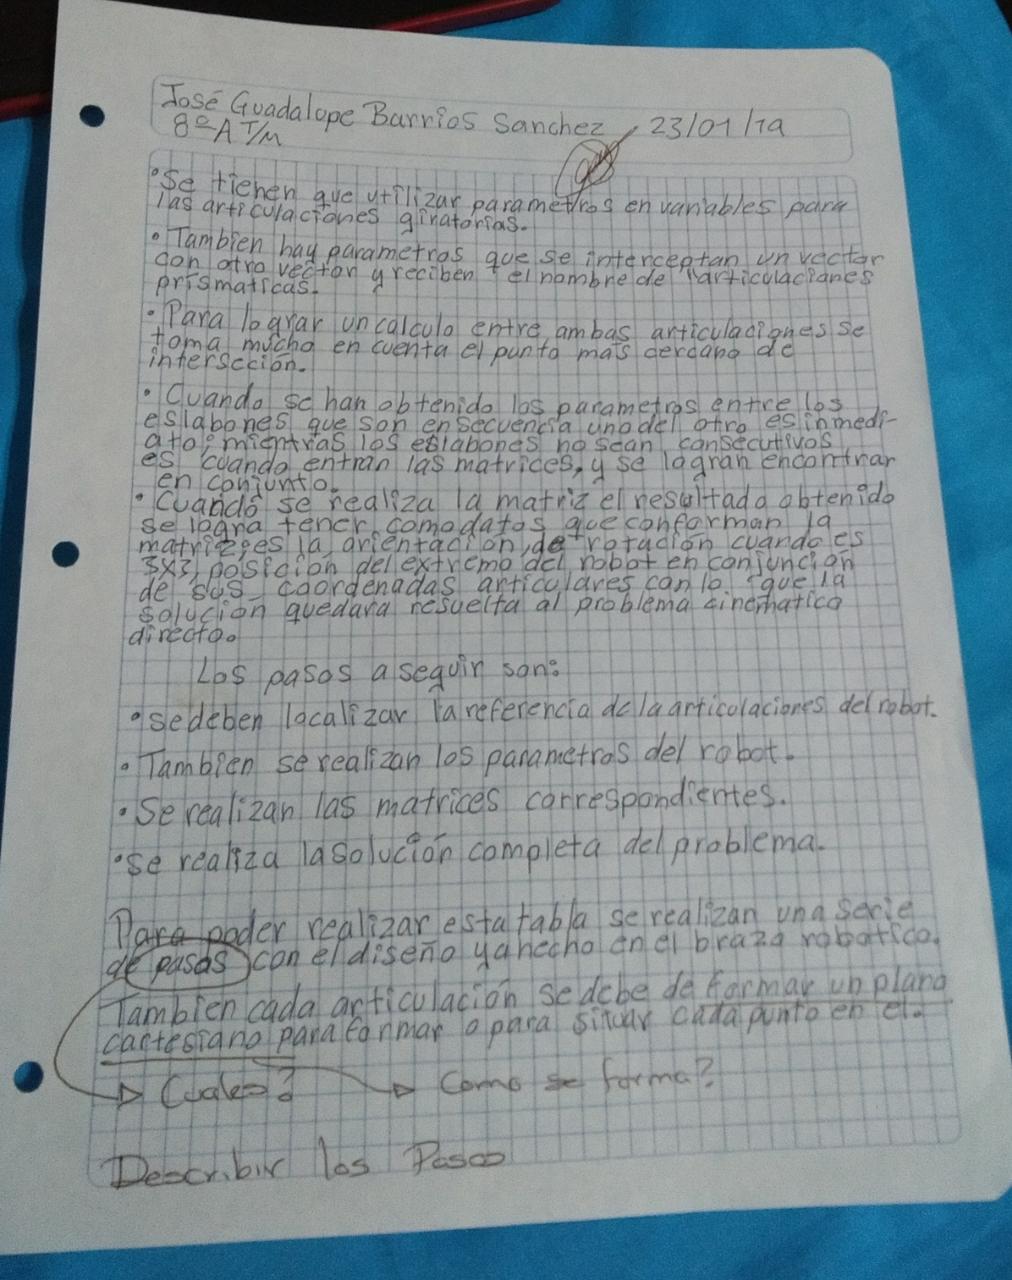 José Guadalupe Barrios Sanchez, 23/01/19
8º A T/M
• Se tienen que utilizar parametros en variables para
las articulaciones giratorias.
• Tambien hay parametros que se interceptan un vector
con otro vector y reciben el nombre de "articulaciones
prismaticas.
• Para lograr un calculo entre ambas articulaciones se
toma mucho en cuenta el punto mas cercano de
intersccion.
• Cuando se han obtenido los parametros entre los
eslabones que son en secuencia uno del otro es inmedi-
ato; mientras los eslabones no sean consecutivos
es cuando entran las matrices, y se logran encontrar
en conjunto.
• Cuando se realiza la matriz el resultado obtenido
se logra tener como datos que conforman la
matriz es la orientación, de rotación cuando es
3x3, posicion del extremo del robot en conjuncion
de sus coordenadas articulares con lo que la
solucion quedara resuelta al problema cinematico
directo.
Los pasos a seguir son:
• se deben localizar la referencia de la articulaciones del robot.
• Tambien se realizan los parametros del robot.
• Se realizan las matrices correspondientes.
• se realiza la solución completa del problema.
Para poder realizar esta tabla se realizan una serie
de pasos con el diseño ya hecho en el brazo robotico.
Tambien cada articulación se debe de formar un plano
cartesiano para formar o para situar cada punto en el.
Cuales? Como se forma?
Describir los Pasos